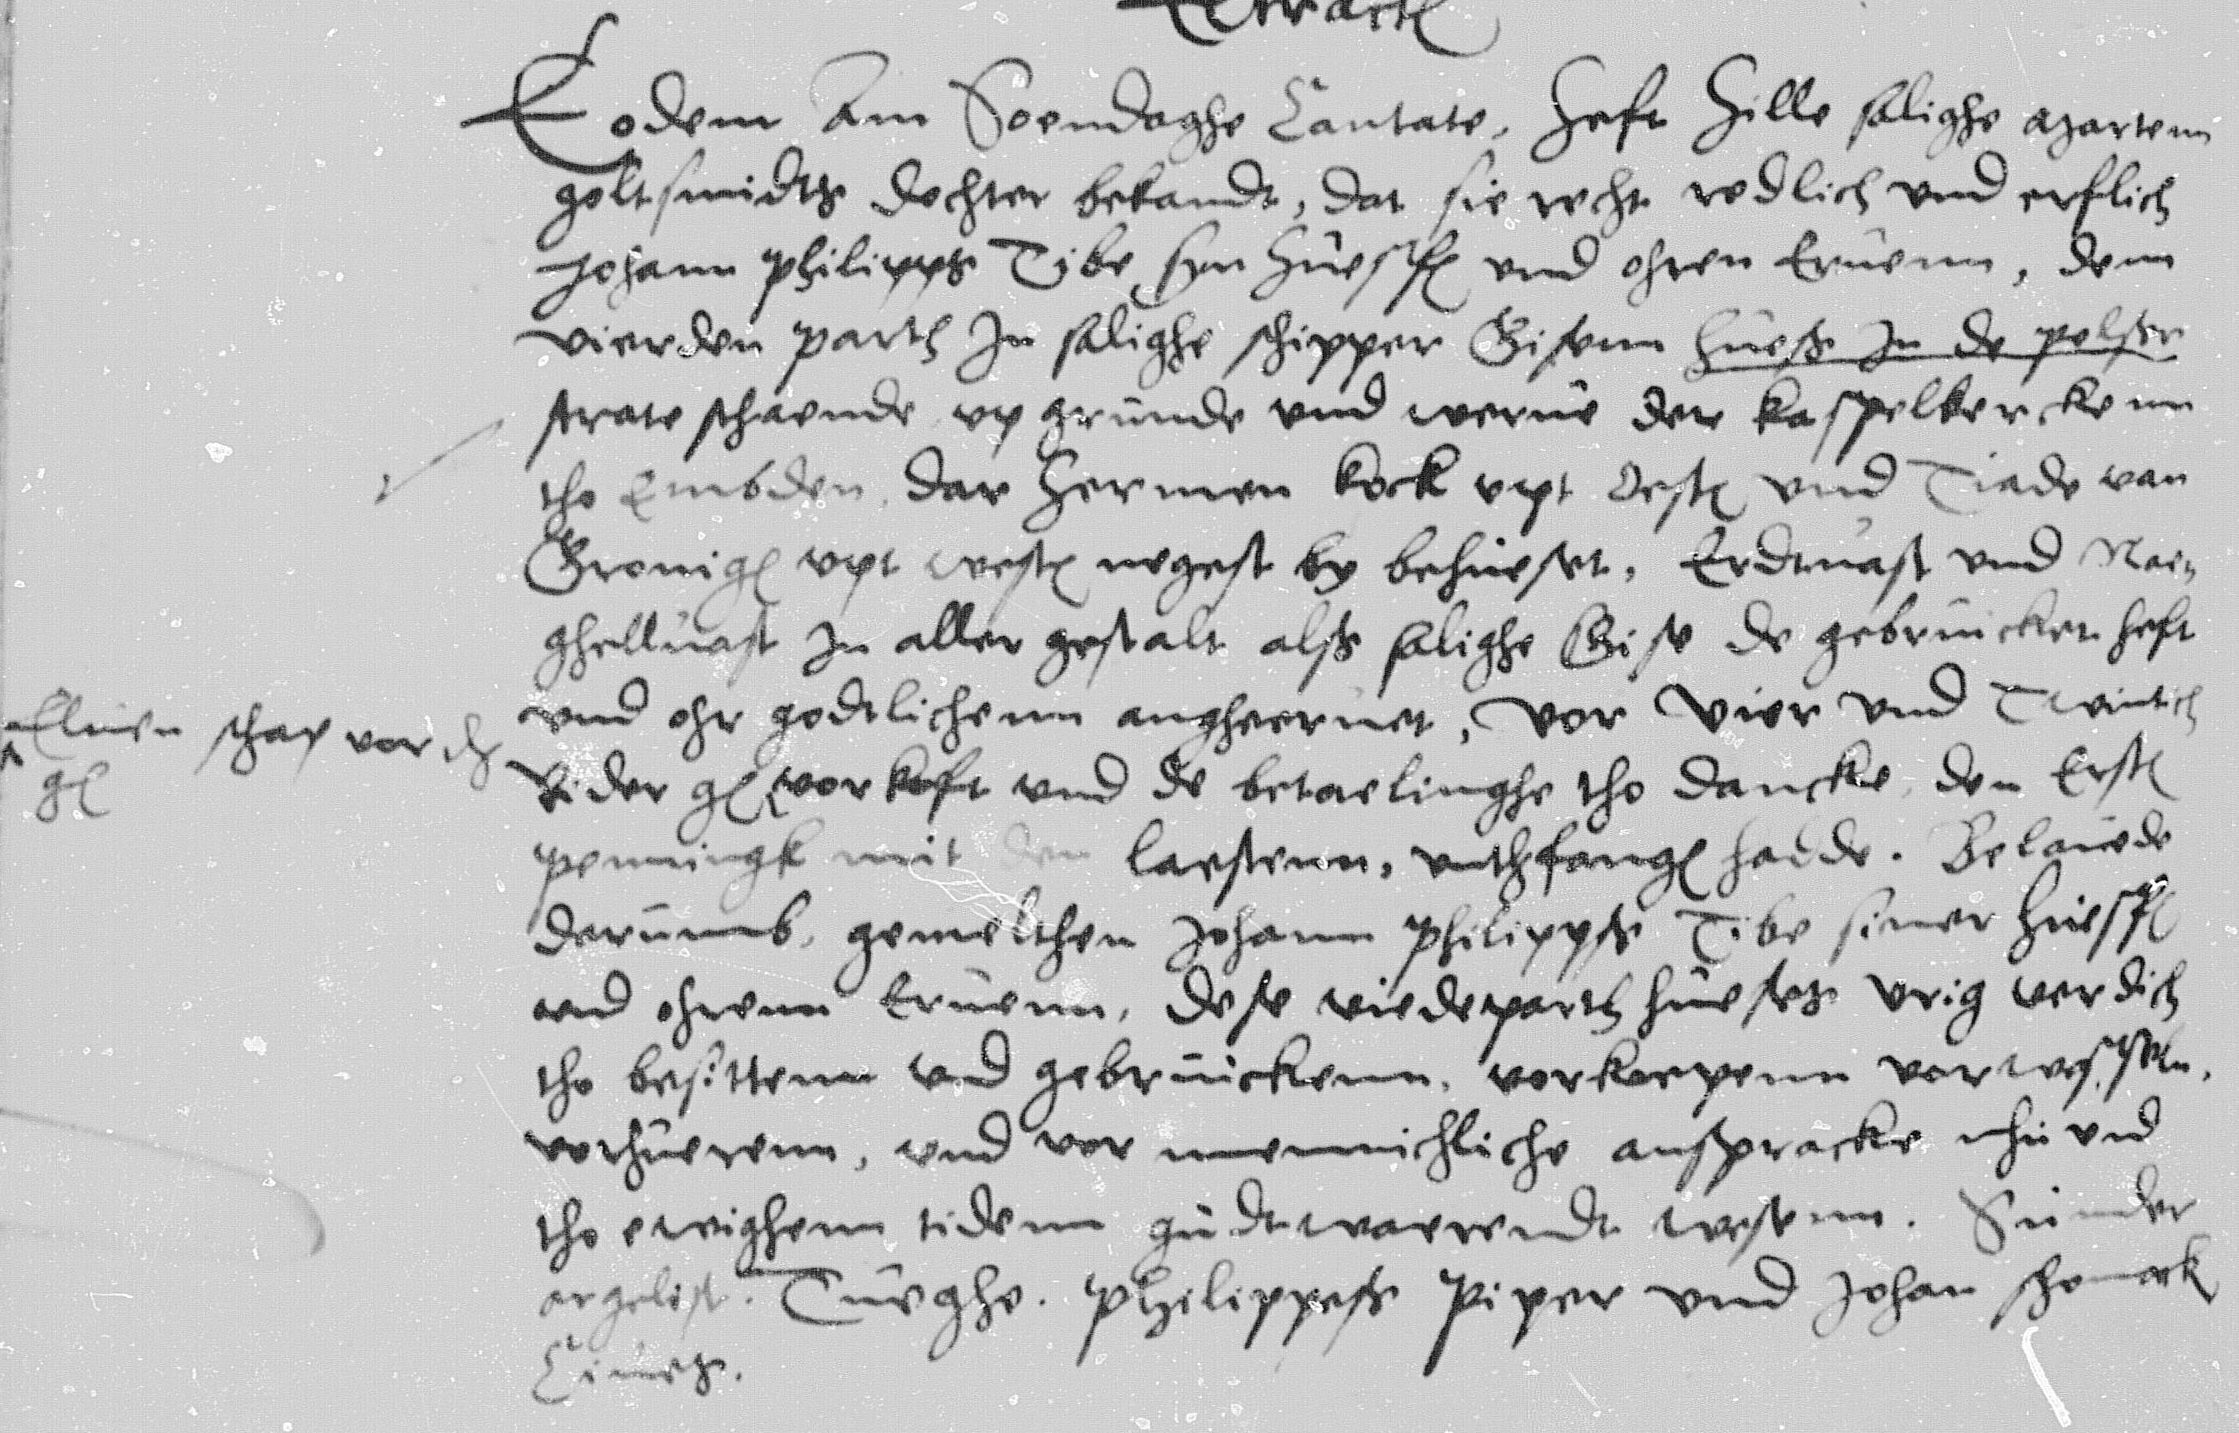 Eodem Am Soendaghe Cantate, heft Hille salighe Martenn
goltsmidtz dochter bekandt, dat sie recht redlich und erflich
Johann Philippß Tibe syn huesf und ohren Eruenn, denn
vierden parth In salighe schipper Gisenn hueß In de pelser
strate sthaende vp grunde und werue der kaspelkerckenn
tho Embden, dar Hermen kock vpt Oest und Tiade van
Gronig vpt west negest by behueset, Erdtuast und Nae
ghelluast In aller gestalt alß salighe Gise de gebruicket heft
und ohr godtlichenn angheeruet, Vor Vier und Twintich
Rider gl vorkoft und de betaelinghe tho dancke, den Erst
penningk mit den laestenn, unthfang hadde. Belauede
darumb, gemelthen Johann Philippß Tibe siner huesf
und ohrenn Eruenn, dese viedeparth hueses vrig verdich
tho besittenn und gebruickenn, vorkoepenn vorwesseln,
vorhuerenn, und vor mennichliche anspracke nhu und
tho ewighenn tidenn gudt waerendt wesenn. Sunder
argelist. Tueghe. Philippeß Piper und Johan schomack
Ciues.
schap vor
gl